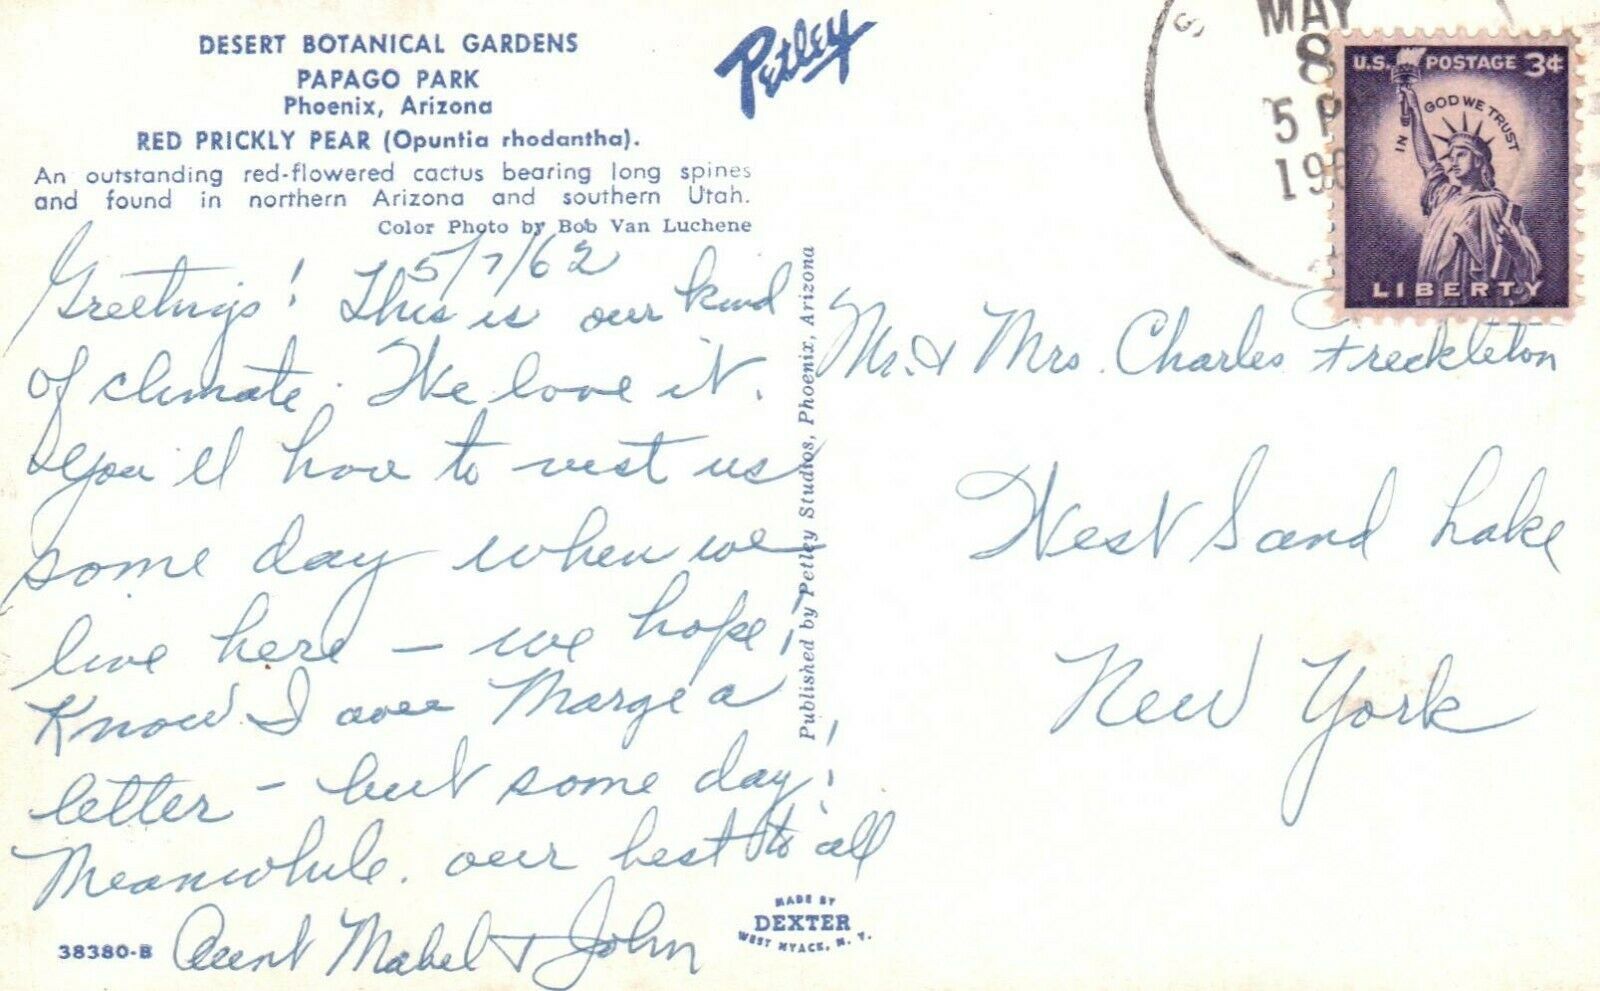 DESERT BOTANICAL GARDENS
PAPAGO PARK
Phoenix, Arizona
RED PRICKLY PEAR (Opuntia rhodantha).
An outstanding red-flowered cactus bearing long spines
and found in northern Arizona and southern Utah.
Color Photo by Bob Van Luchene
Petley
5/7/62
Greetings! This is our kind
of climate. We love it.
You'll have to visit us
some day when we
live here - we hope!
Know I owe Marge a
letter - but some day!
Meanwhile. our best to all
Aunt Mabel & John
38380-B
MADE BY
DEXTER
WEST NYACK, N. Y.
Published by Petley Studios, Phoenix, Arizona
MAY
8
5 P
196
U.S. POSTAGE 3¢
IN GOD WE TRUST
LIBERTY
Mr. & Mrs. Charles Freckleton
West Sand Lake
New York